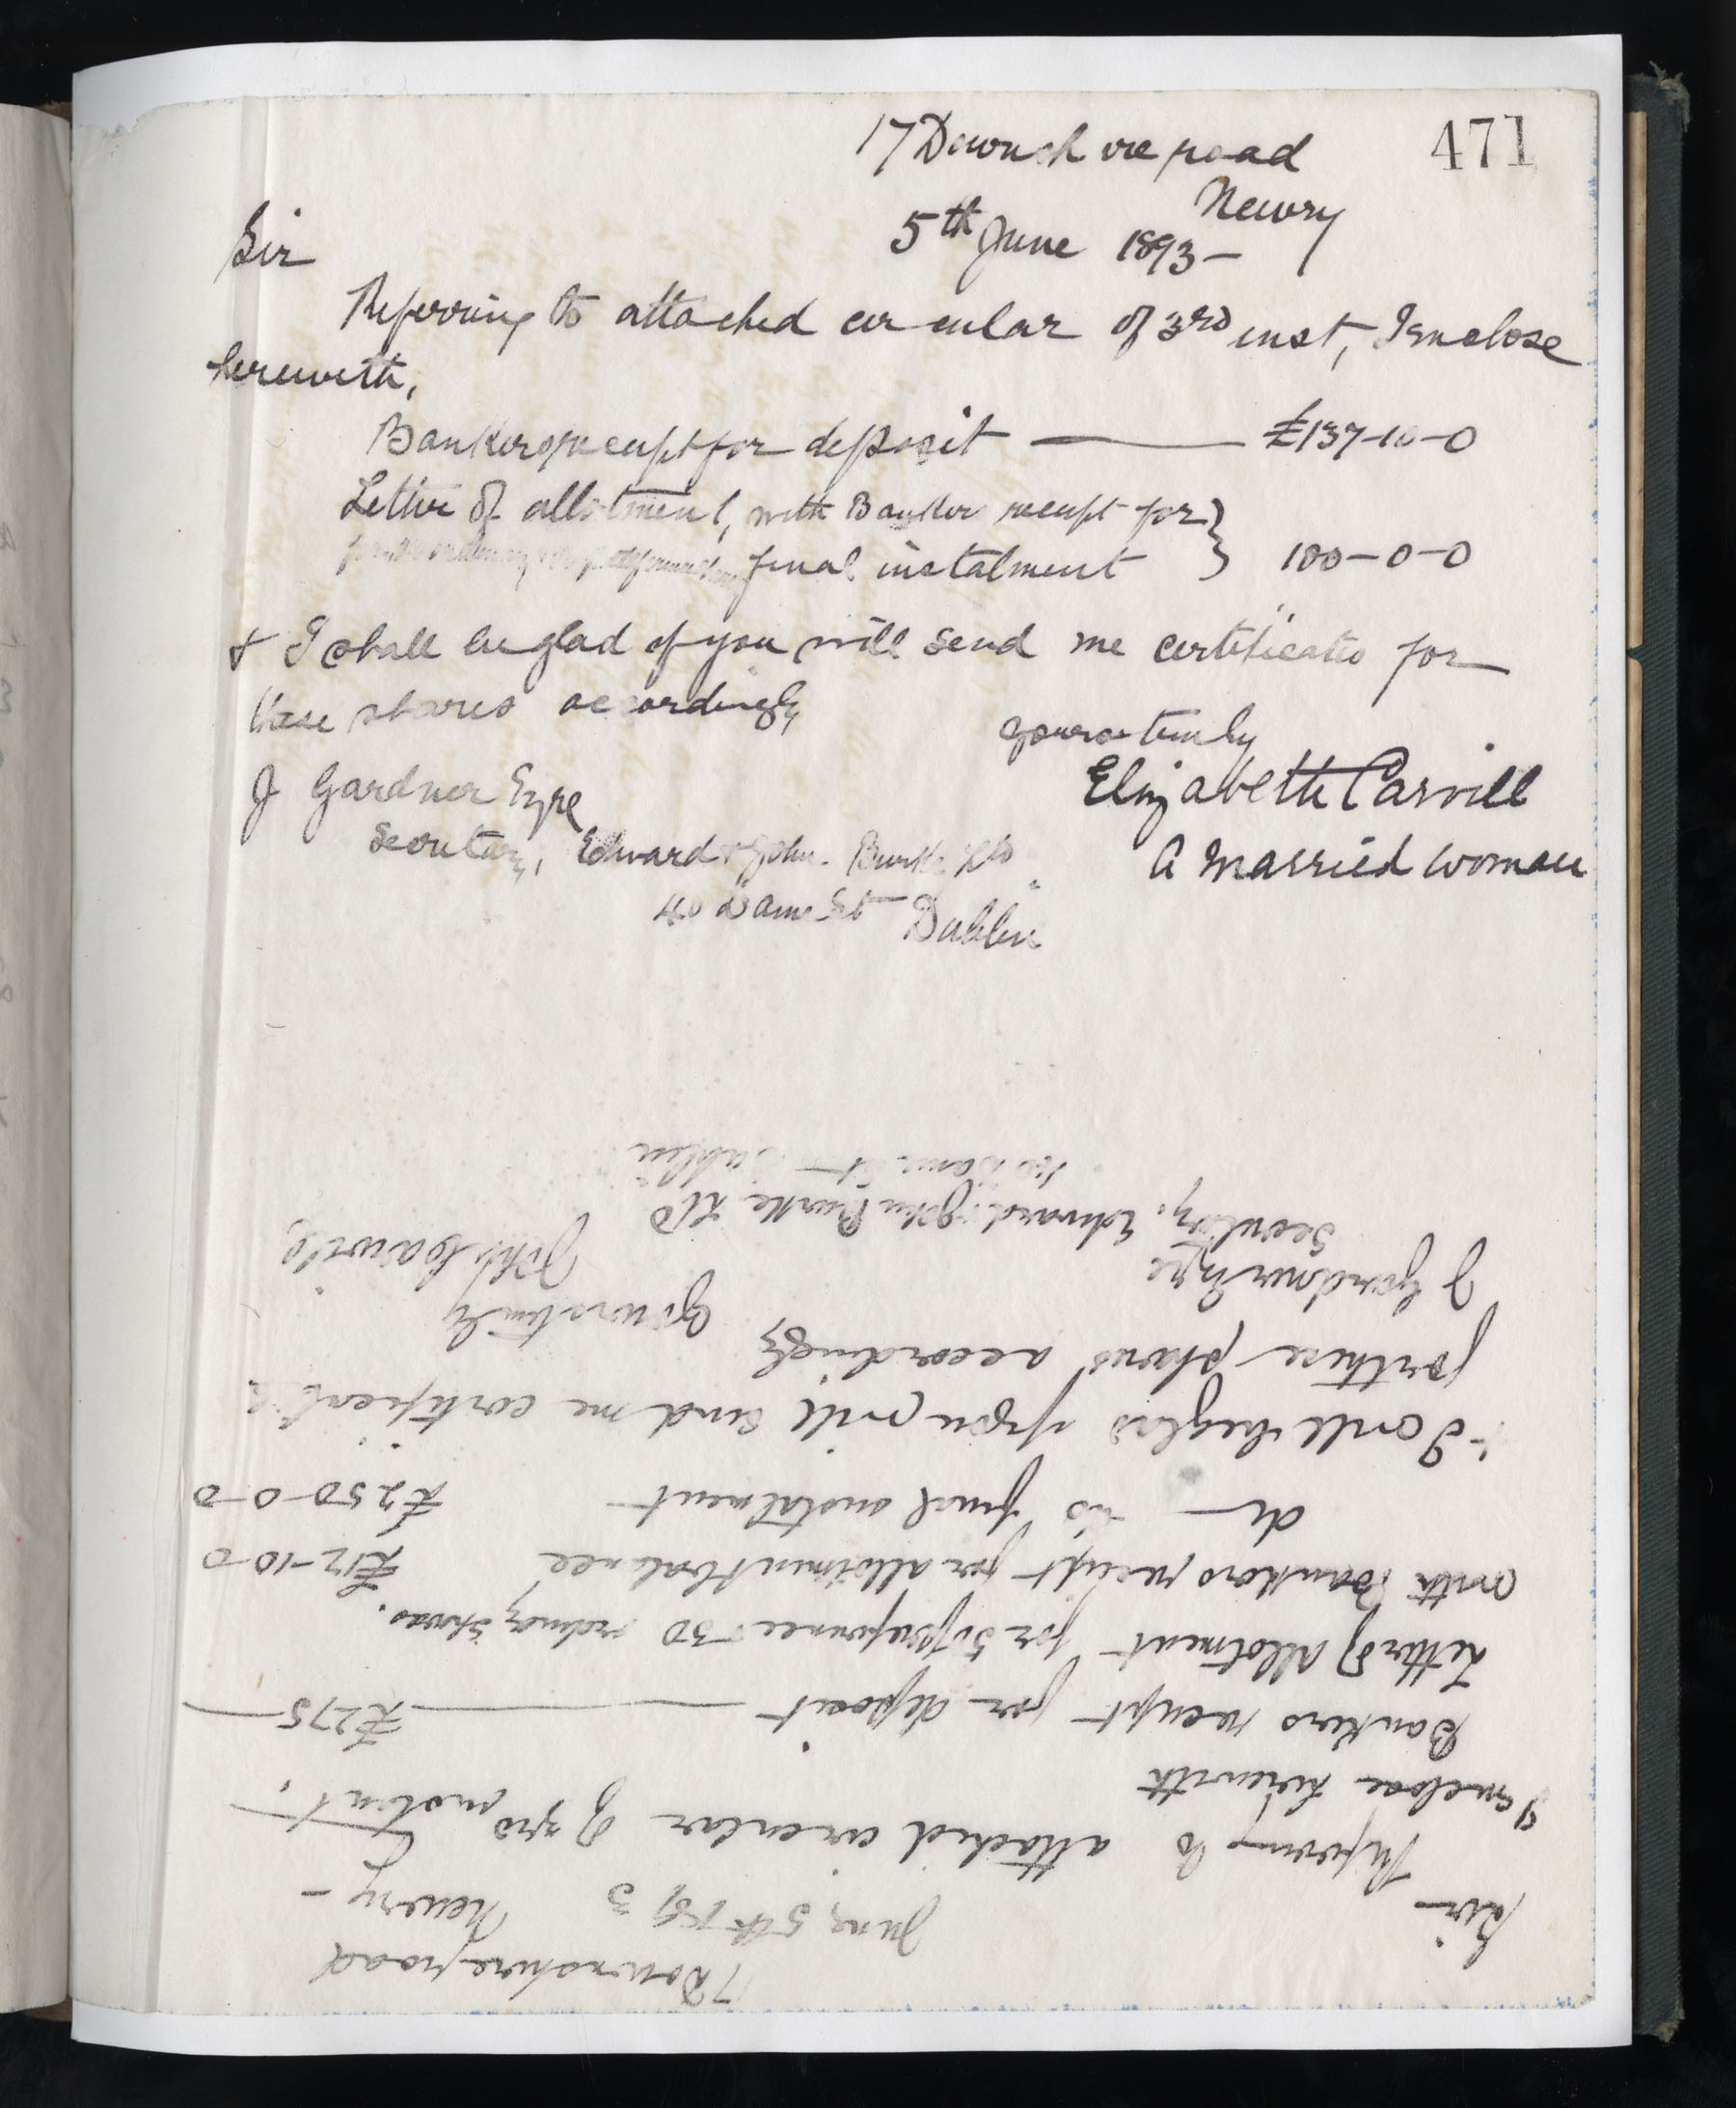 471
17 Downshire road
Newry
5th June 1893-
Sir
Referring to attached circular of 3rd inst, I enclose
herewith,
Bankers receipt for deposit — £137-10-0
Letter of allotment, with Bankers receipt for }
final instalment } 100-0-0
& I shall be glad if you will send me certificates for
these shares accordingly
Yours truly
Elizabeth Carvill
A Married Woman
J Gardner Eyre
Secretary, Edward & John Burke Ltd
40 Dame St - Dublin
17 Downshire road
June 5th 1893 Newry -
Sir
Referring to attached circular of 3rd instant,
I enclose herewith
Bankers receipt for deposit — £275 —
Letter of allotment for 50 preference & 50 ordinary shares.
with Bankers receipt for allotment balance £12-10-0
do — do final instalment £250-0-0
& I will be glad if you will send me certificate
for these shares accordingly
Yours truly
John Carvill
J Gardner Eyre
Secretary, Edward & John Burke Ltd
40 Dame St - Dublin